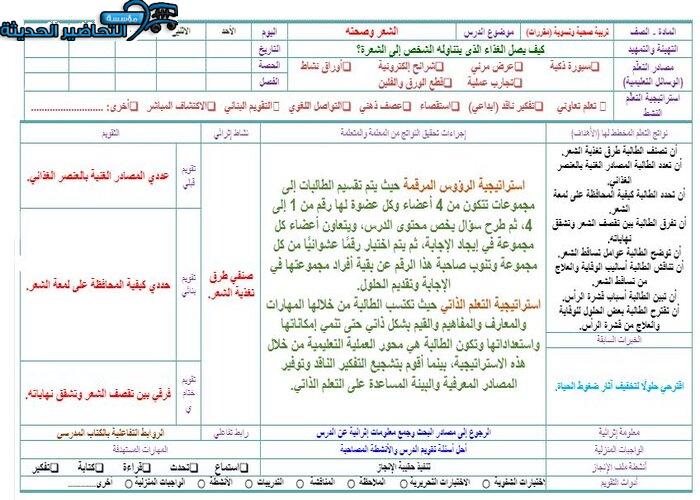 مؤسسة
التحاضير الحديثة
المادة - الصف
تربية صحية ونسوية (مقررات)
موضوع الدرس
الشعر وصحته
اليوم
الأحد
الاثنين
التهيئة والتمهيد
كيف يصل الغذاء الذي يتناوله الشخص إلى الشعرة؟
التاريخ
مصادر التعلم
(الوسائل التعليمية)
سبورة ذكية
عرض مرئي
شرائح إلكترونية
أوراق نشاط
تجارب عملية
قطع الورق والفلين
الحصة
الفصل
استراتيجية التعلم
النشط
تعلم تعاوني
تفكير ناقد (إبداعي)
استقصاء
عصف ذهني
التواصل اللغوي
التقويم البنائي
الاكتشاف المباشر
أخرى: ..........................
نواتج التعلم المخطط لها (الأهداف)
إجراءات تحقيق النواتج من المعلمة والمتعلمة
نشاط إثرائي
التقويم
أن تصنف الطالبة طرق تغذية الشعر.
أن تعدد الطالبة المصادر الغنية بالعنصر
الغذائي.
أن تحدد الطالبة كيفية المحافظة على لمعة
الشعر.
أن تفرق الطالبة بين تقصف الشعر وتشقق
نهاياته.
أن توضح الطالبة عوامل تساقط الشعر.
أن تناقش الطالبة أساليب الوقاية والعلاج
من تساقط الشعر.
أن تبين الطالبة أسباب قشرة الرأس.
أن تقترح الطالبة بعض الحلول للوقاية
والعلاج من قشرة الرأس.
الخبرات السابقة
اقترحي حلولًا لتخفيف آثار ضغوط الحياة.
استراتيجية الرؤوس المرقمة حيث يتم تقسيم الطالبات إلى
مجموعات تتكون من 4 أعضاء وكل عضوة لها رقم من 1 إلى
4 ، ثم طرح سؤال يخص محتوى الدرس، ويتعاون أعضاء كل
مجموعة في إيجاد الإجابة، ثم يتم اختيار رقمًا عشوائيًا من كل
مجموعة وتنوب صاحبة هذا الرقم عن بقية أفراد مجموعتها في
الإجابة وتقديم الحلول.
استراتيجية التعلم الذاتي حيث تكتسب الطالبة من خلالها المهارات
والمعارف والمفاهيم والقيم بشكل ذاتي حتى تنمي إمكاناتها
واستعداداتها وتكون الطالبة هي محور العملية التعليمية من خلال
هذه الاستراتيجية، بينما أقوم بتشجيع التفكير الناقد وتوفير
المصادر المعرفية والبيئة المساعدة على التعلم الذاتي.
صنفي طرق
تغذية الشعر.
تقويم
قبلي
عددي المصادر الغنية بالعنصر الغذائي.
تقويم
بنائي
حددي كيفية المحافظة على لمعة الشعر.
تقويم
ختام
ي
فرقي بين تقصف الشعر وتشقق نهاياته.
معلومة إثرائية
الرجوع إلى مصادر البحث وجمع معلومات إثرائية عن الدرس
رابط تفاعلي
الروابط التفاعلية بالكتاب المدرسي
الواجبات المنزلية
أحل أسئلة تقويم الدرس والأنشطة المصاحبة
المهارات المستهدفة
أنشطة ملف الإنجاز
تنفيذ حقيبة الإنجاز
استماع
تحدث
قراءة
كتابة
تفكير
أدوات التقويم
اختبارات الشفوية
الاختبارات التحريرية
الملاحظة
المناقشة
التدريبات
الأنشطة
الواجبات المنزلية
أخرى..............